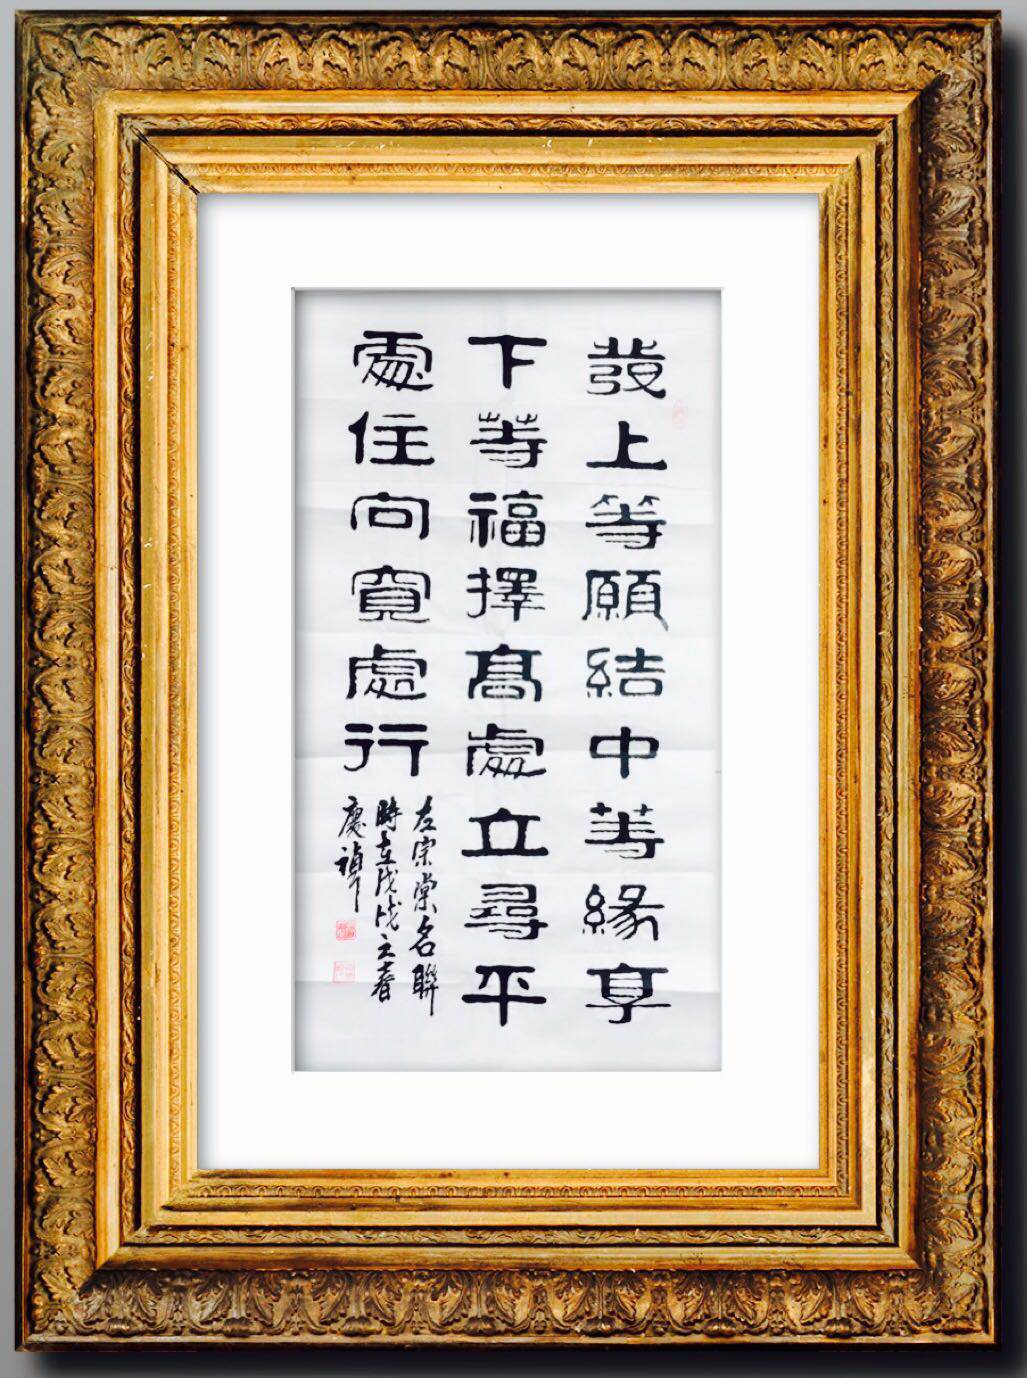 發上等願結中等緣享
下等福擇髙處立尋平
處住向寬處行
左宗棠名聯
時在戊戌之春
慶